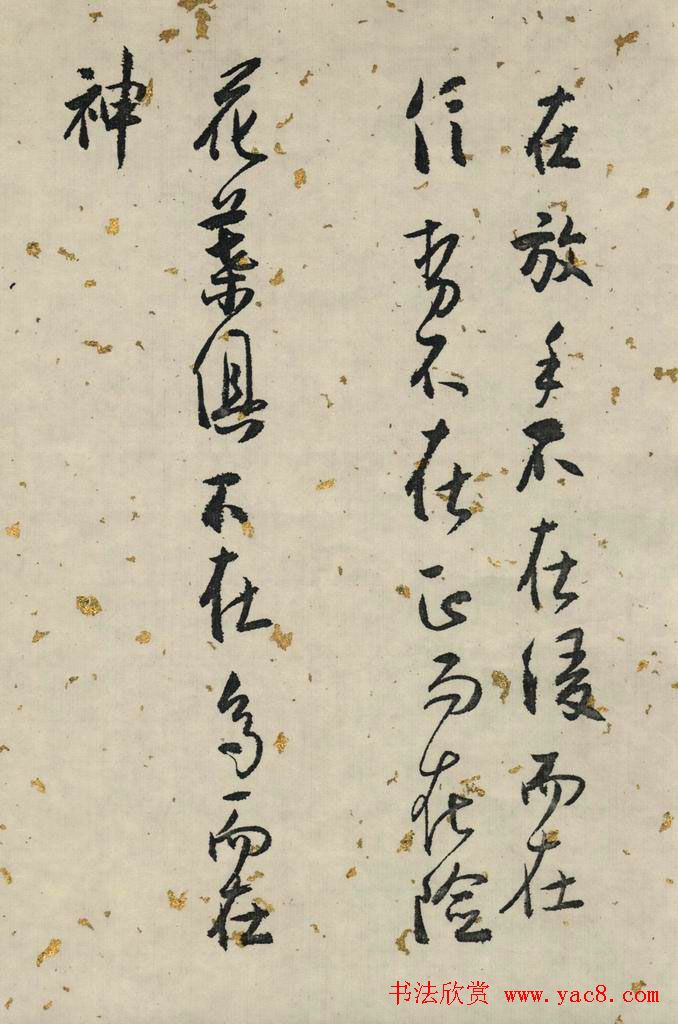 在放手不在而在
信势不在正而在險
花葉俱不在而在
神
书法欣赏 www.yac8.com